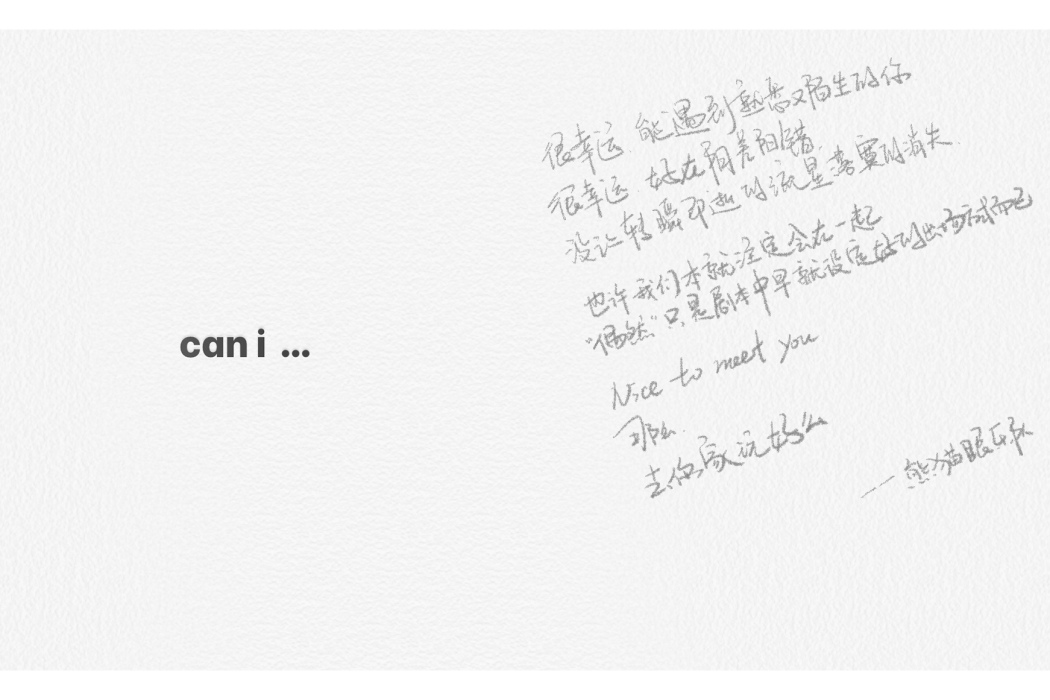 can i ...
很幸运 能遇到熟悉又陌生的你
很幸运 好在阴差阳错
没让转瞬即逝的流星落寞的消失
也许我们本就注定会在一起
“偶然”只是剧本中早就设定好的出场方式而已
Nice to meet you
那么
去你家玩好么
——熊猫眼乐队